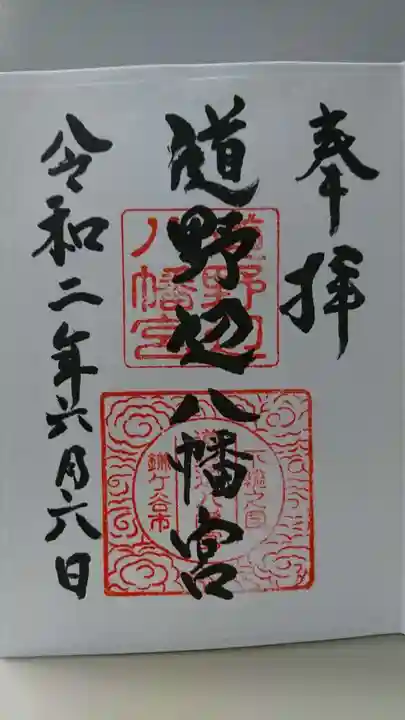 奉拝
道野辺八幡宮
令和二年六月六日
道野辺
八幡宮
下總之国
鎌ケ谷市